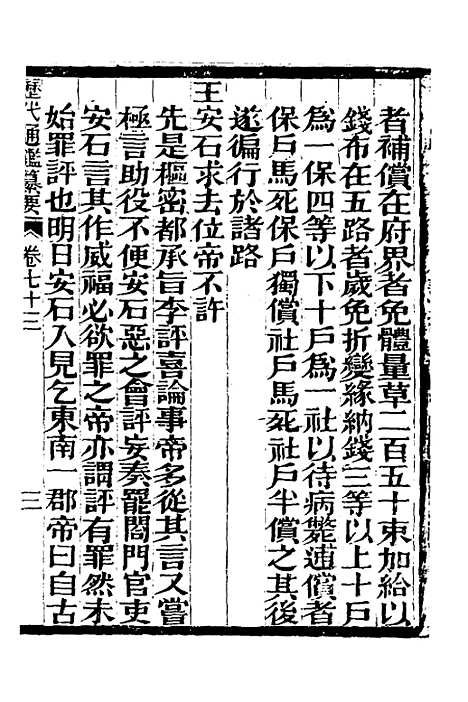 者補償在府界者免體量草二百五十束加給以
錢布在五路者歲免折變緣納錢三等以上十戶
爲一保四等以下十戶爲一社以待病斃逋償者
保戶馬死保戶獨償社戶馬死社戶半償之其後
遂徧行於諸路
王安石求去位帝不許
先是樞密都承旨李評喜論事帝多從其言又嘗
極言助役不便安石惡之會評妄奏罷閤門官吏
安石言其作威福必欲罪之帝亦謂評有罪然未
始罪評也明日安石入見乞東南一郡帝曰自古
歷代通鑑纂要 卷七十三 三